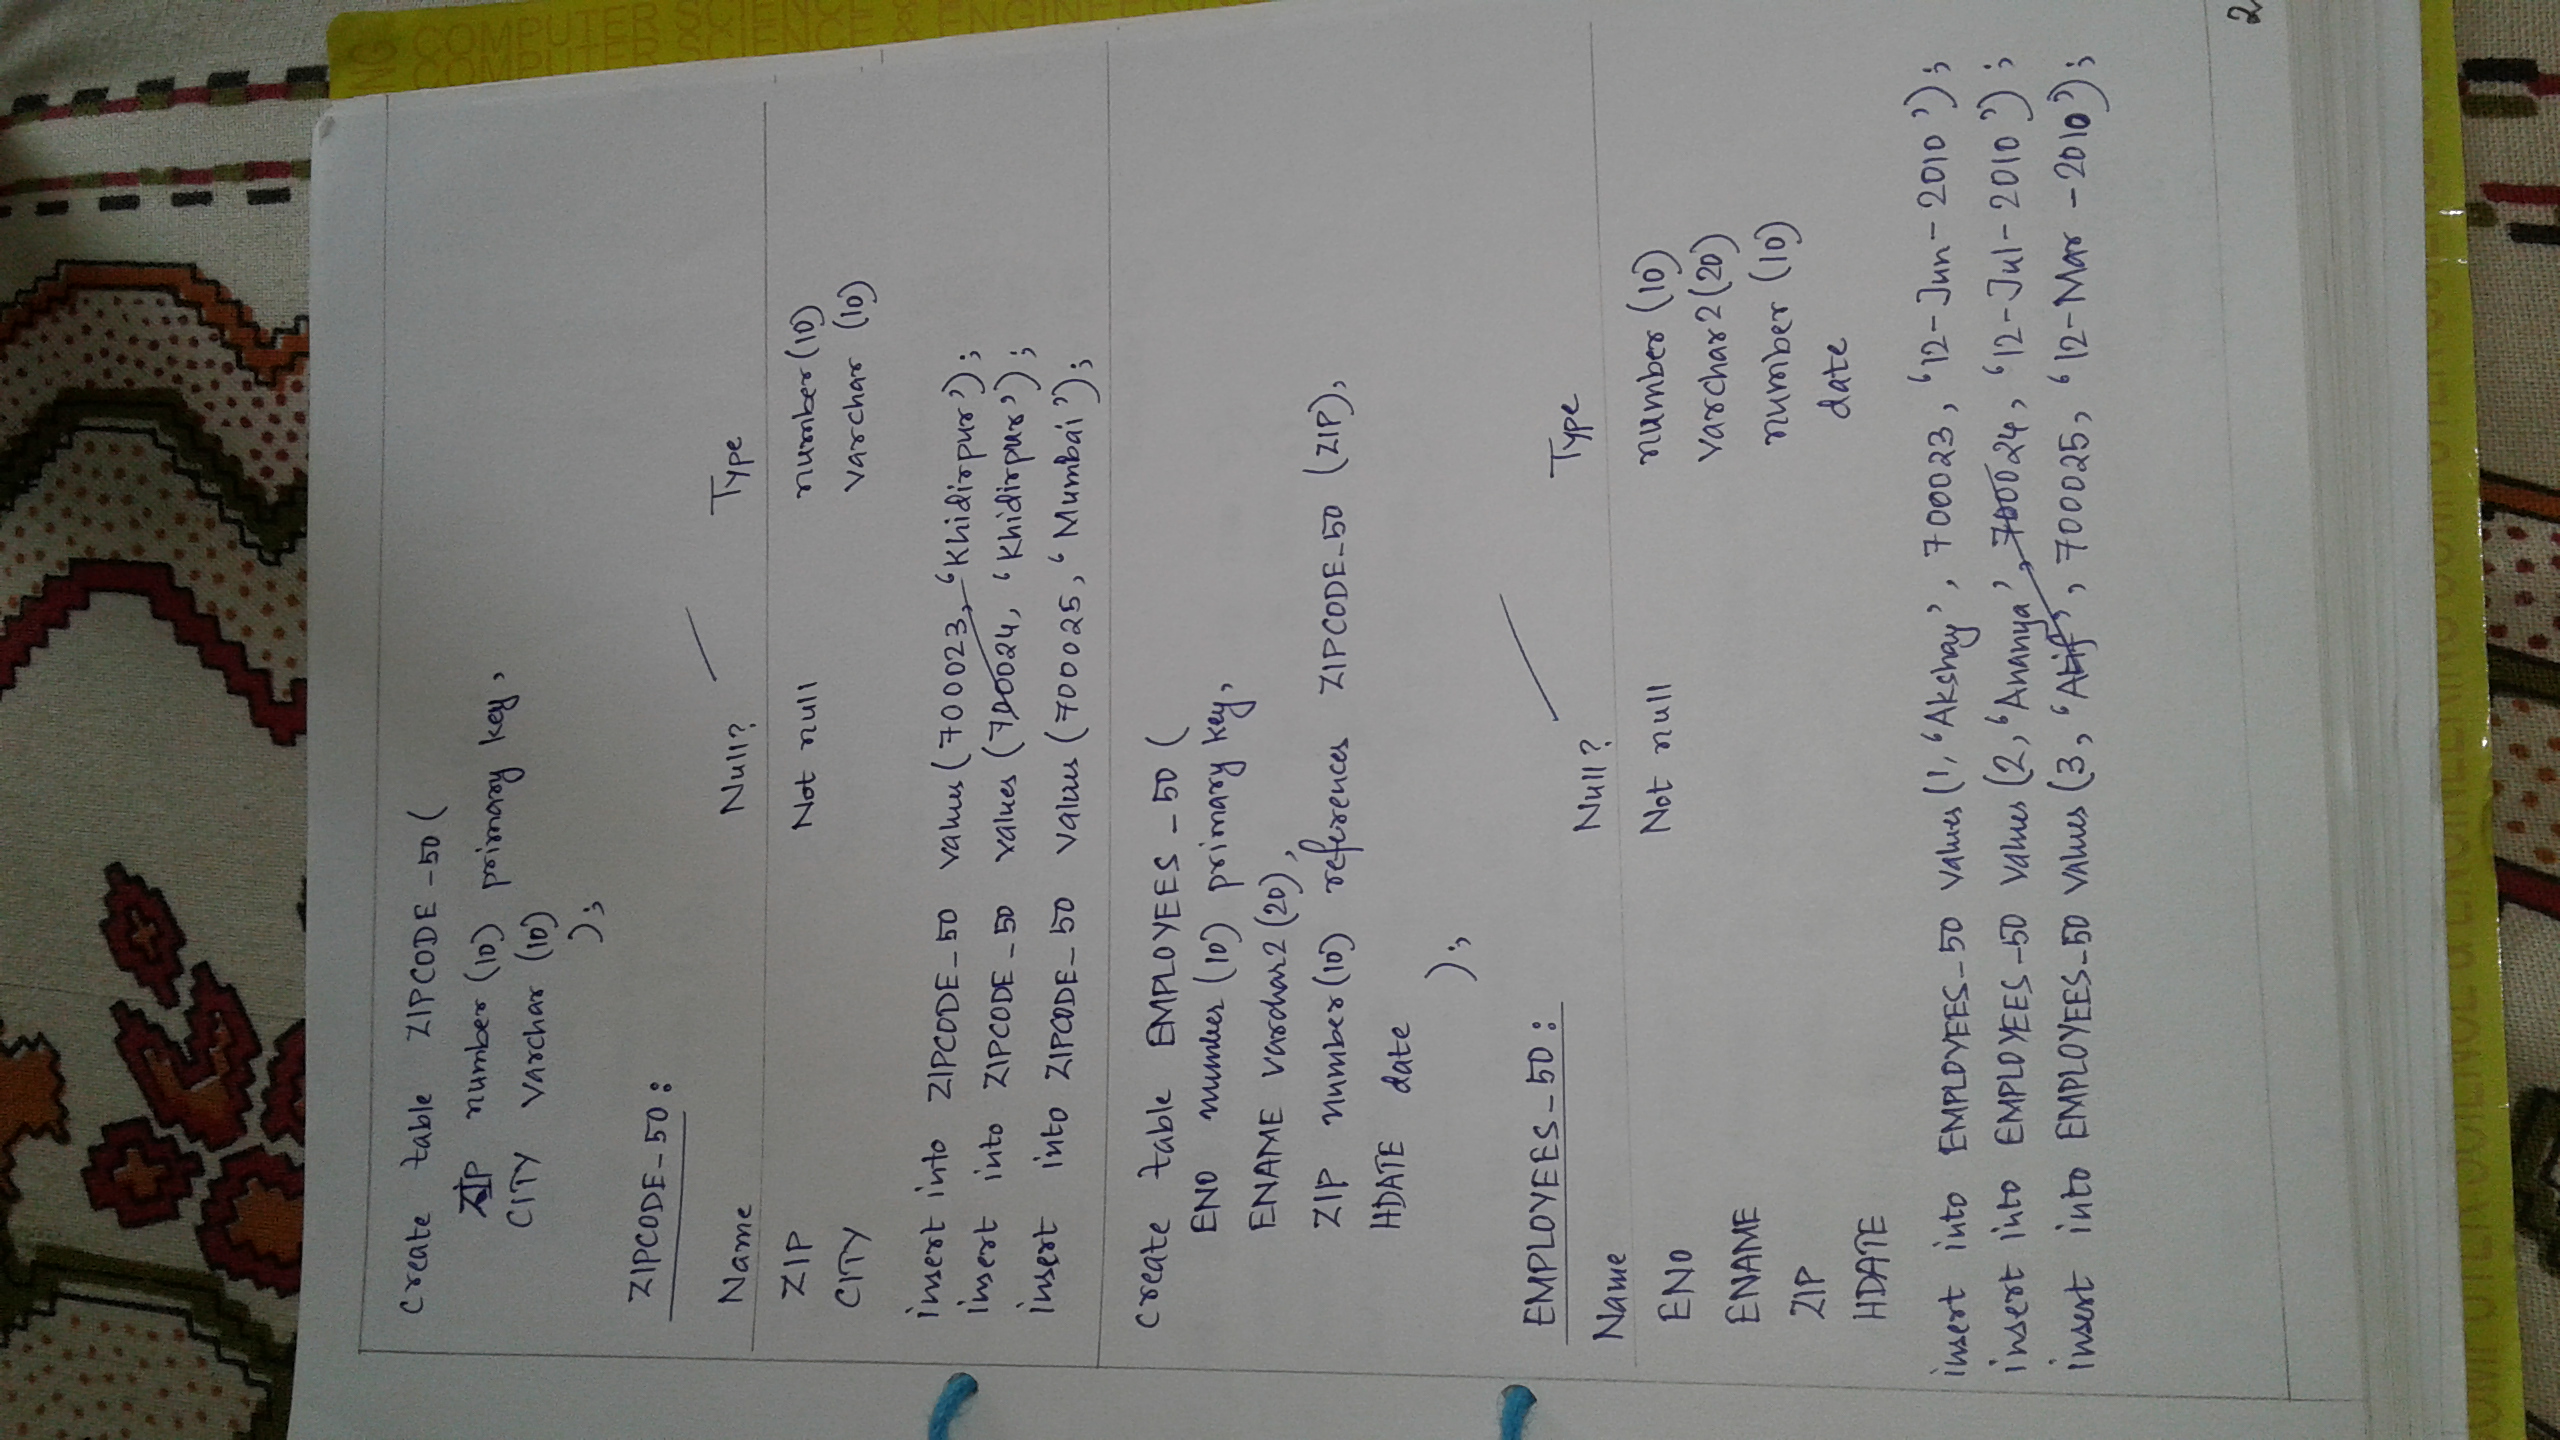 create table ZIPCODE_50 (
ZIP number (10) primary key,
CITY varchar (10)
);
ZIPCODE_50 :
Name Null? Type
ZIP Not null number (10)
CITY varchar (10)
insert into ZIPCODE_50 values (700023, 'Khidirpur');
insert into ZIPCODE_50 values (700024, 'Khidirpur');
insert into ZIPCODE_50 values (700025, 'Mumbai');
create table EMPLOYEES_50 (
ENO number (10) primary key,
ENAME varchar2 (20),
ZIP number (10) references ZIPCODE_50 (ZIP),
HDATE date
);
EMPLOYEES_50 :
Name Null? Type
ENO Not null number (10)
ENAME varchar2 (20)
ZIP number (10)
HDATE date
insert into EMPLOYEES_50 values (1, 'Akshay', 700023, '12-Jun-2010');
insert into EMPLOYEES_50 values (2, 'Ananya', 700024, '12-Jul-2010');
insert into EMPLOYEES_50 values (3, 'Atif', 700025, '12-Mar-2010');
2